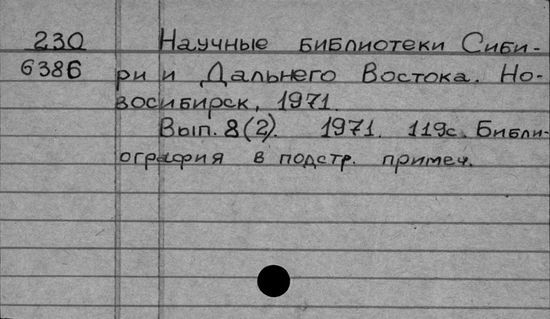 230 Научные библиотеки Сиби-
6386 ри и Дальнего Востока. Но-
восибирск, 1971.
Вып. 8(2). 1971. 119с. Библи-
ография в подстр. примеч.